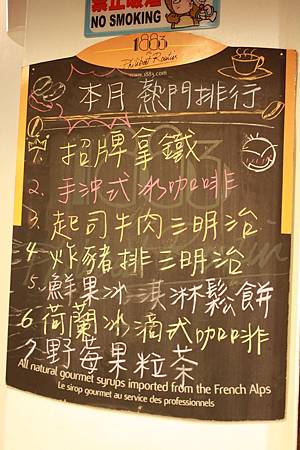 禁止吸菸
NO SMOKING
1883
Philibert Routin
www.1883.com
本月熱門排行
1. 招牌拿鐵
2. 手沖式冰咖啡
3. 起司牛肉三明治
4. 炸豬排三明治
5. 鮮果冰淇淋鬆餅
6. 荷蘭冰滴式咖啡
7. 野莓果粒茶
All natural gourmet syrups imported from the French Alps
Le sirop gourmet au service des professionnels